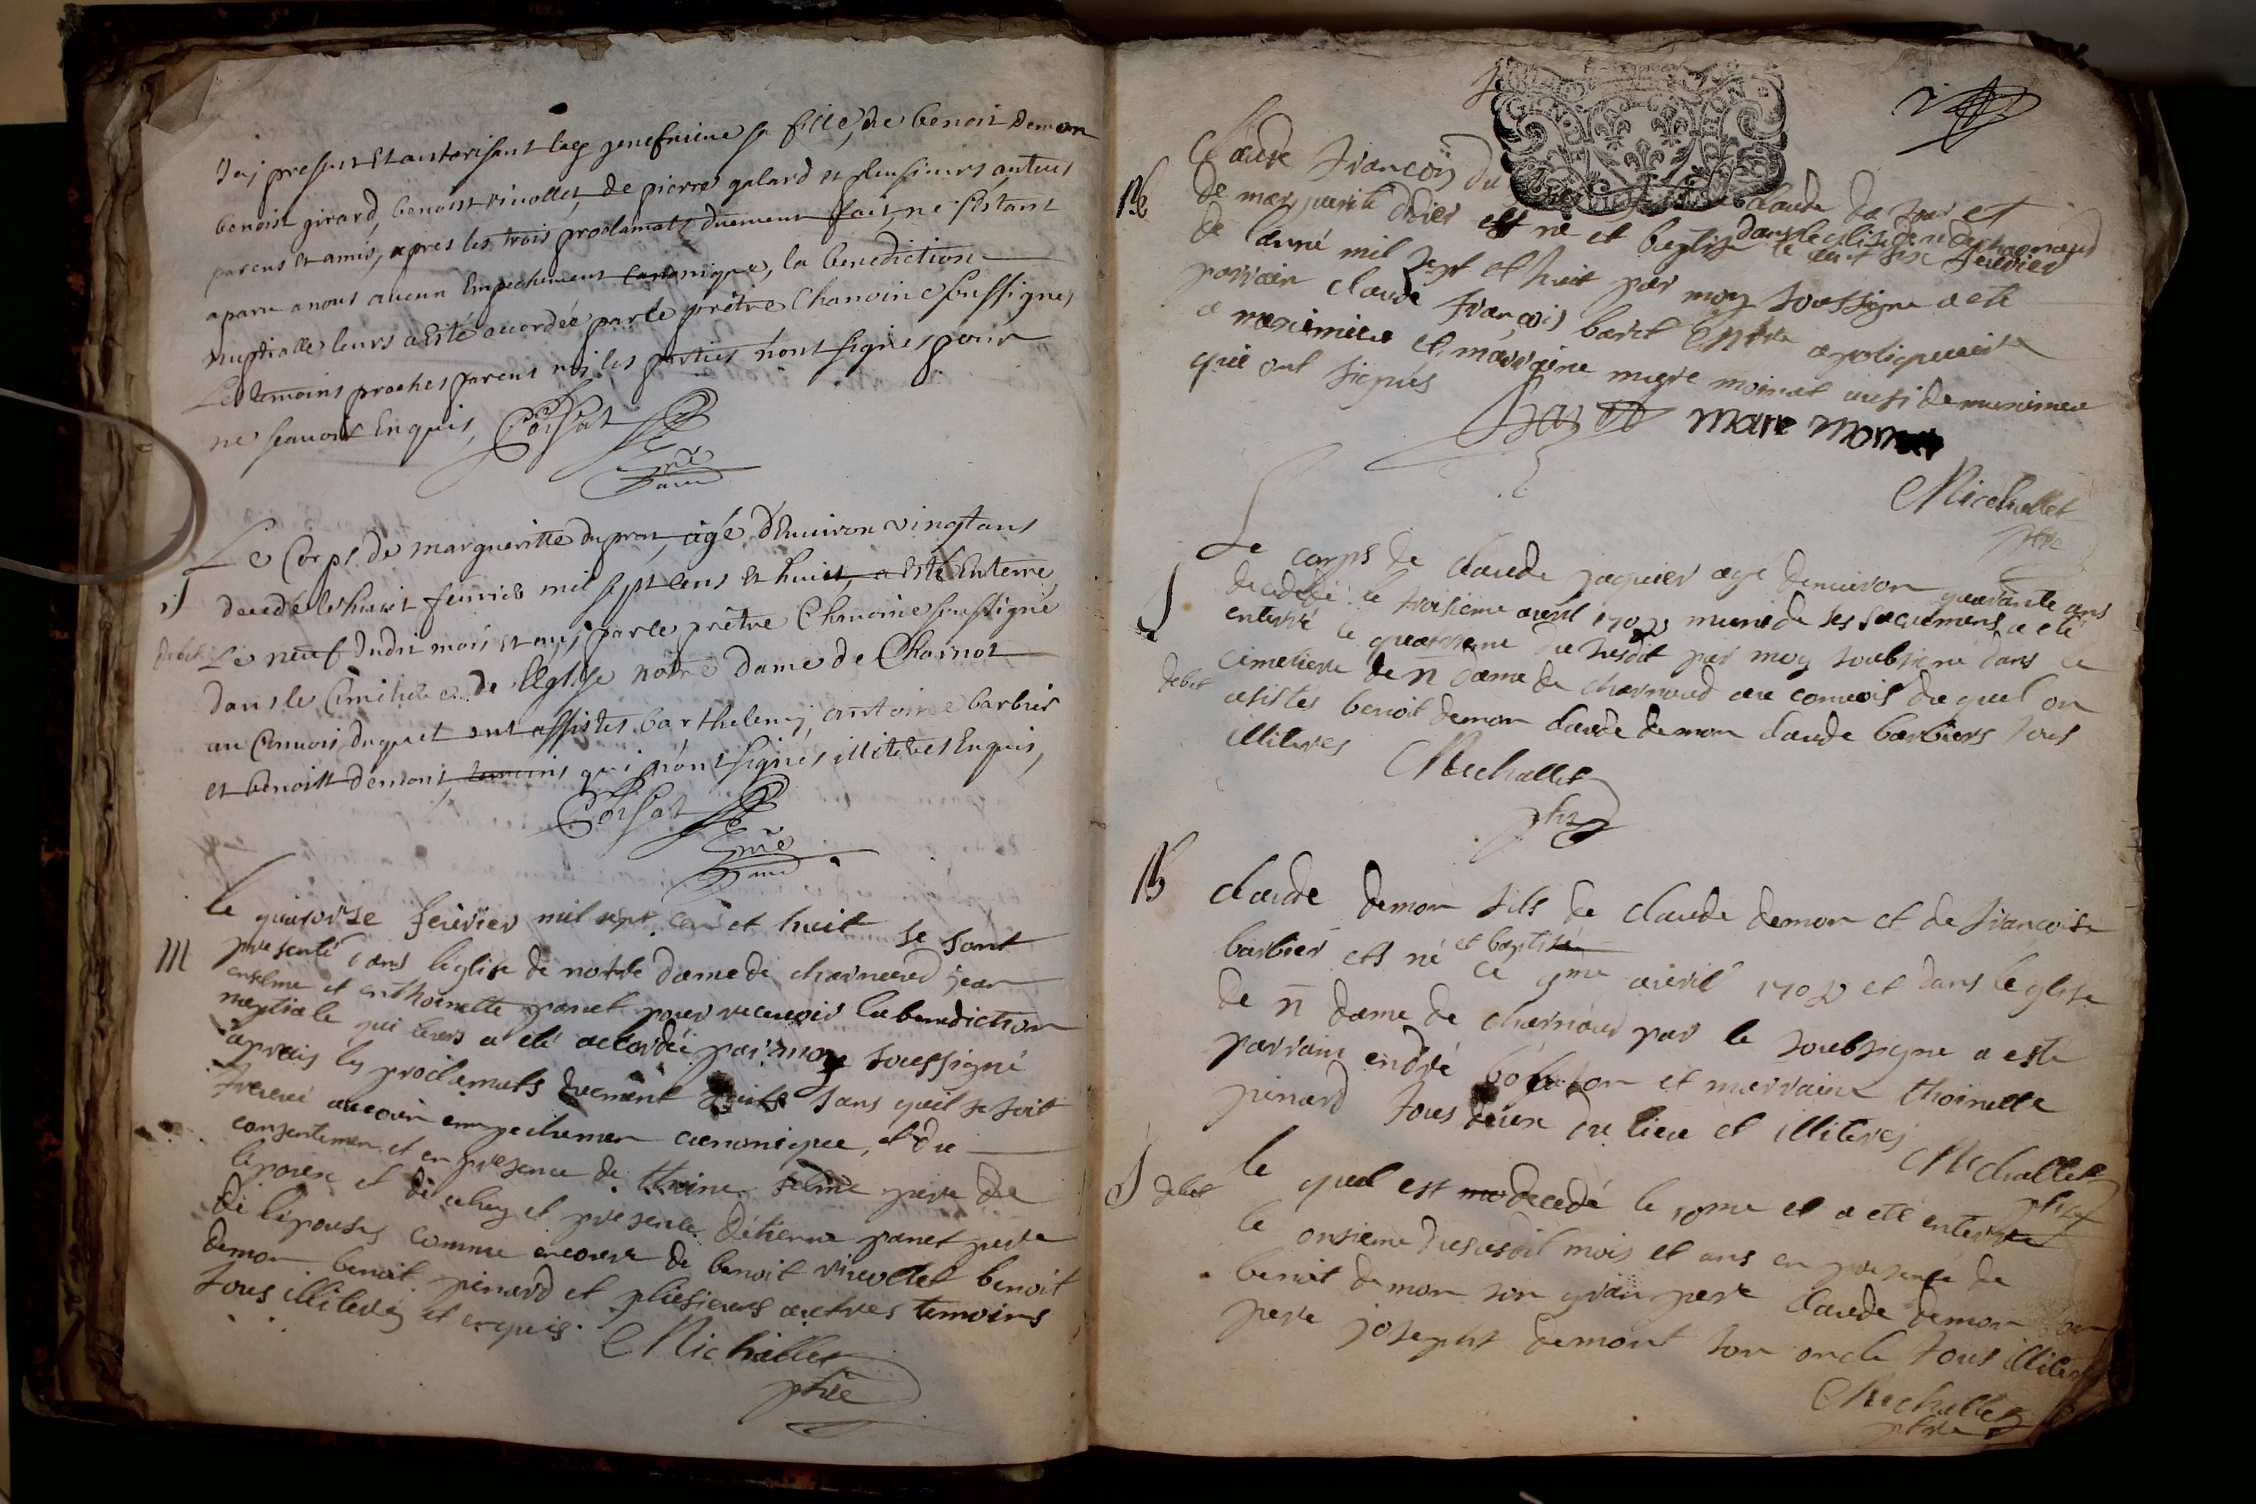 icy present et autorisant lad genefvieve sa fille, de benoit Demon
benoist girard, benoist vivollet, de pierre galard et plusieurs autres
parens et amis, apres les trois proclamats duement fait, ne sistant
aparu a nous aucun Empechement canonique, la benediction
nuptialle leurs a esté accordée par le prêtre Chanoine soussigné
Les temoins proches parens ni les parties n'ont signés pour
ne scavoir Enquis, Corsat
Le Corps de margueritte dupra, agé d'Environ vingt ans
decedé le huict feuvrier mil sept cens et huict, a esté Enterré
debet Le neuf dudit mois et an, par le prêtre Chanoine soussigné
dans le Cimitiere de l'Eglise notre dame de Charnoz
au Convois duquel ont assistes barthelemy, antoine barbier
et benoist demont, temoins qui n'ont signés illiteres Enquis,
Corsat
le quatorse feuvrier mil sept cen et huit se sont
M presenté dans l'eglise de notre dame de charnoud jean
enselme et enthoinette panet pour recevoir la benediction
nuptiale qui leurs a eté accordée par moy soussigné
aprais les proclamats duement faits sans queil se soit
treuvé aucuin empechemen canonique, et du
consentemen et en presence de selme pere de
lepoux et de celuy et presence d'etienne panet pere
de lepouse comme encore de benoit vivollet benoit
demon benoit pinard et plusieurs autres temoins
tous illiterés et enquis. Michallet
ptre
Claude François du claude du et
B de marguerite didier est né et beptisé dans leglise de n d de charnoud le feuvrier
de lanné mil sept et huit par moy soussigne a eté
parrain claude françois baret apotiquaire
a meximieu et marraine marie moinat ausi de meximieu
qui ont signés
marie
Michallet
ptre
Le corps de claude jaquier age denuiron quarante ans
decedé le troisieme avril 1708 muni de ses sacremens a eté
enterré le quatrieme du susdit par moy soubsigne dans le
cimetiere de n dame de charnoud au convois du quel on
debet asistés benoit demon claude demon claude barbiers tous
illiteres Michallet
ptre
B claude demon fils de claude demon et de françoise
barbier ets né et baptisé ce 9me avril 1708 et dans leglise
de n dame de charnoud par le soubsigne a este
parrain endré et marraine thoinette
pinard tous deux du lieu et illiterés Michallet
ptre
debet le quel est decedé le 10me et a eté enterré
le onsieme du susdit mois et ans en presence de
benoit demon son gran pere claude demon son
pere joseph demont son oncle tous illiterés
Michallet
ptre